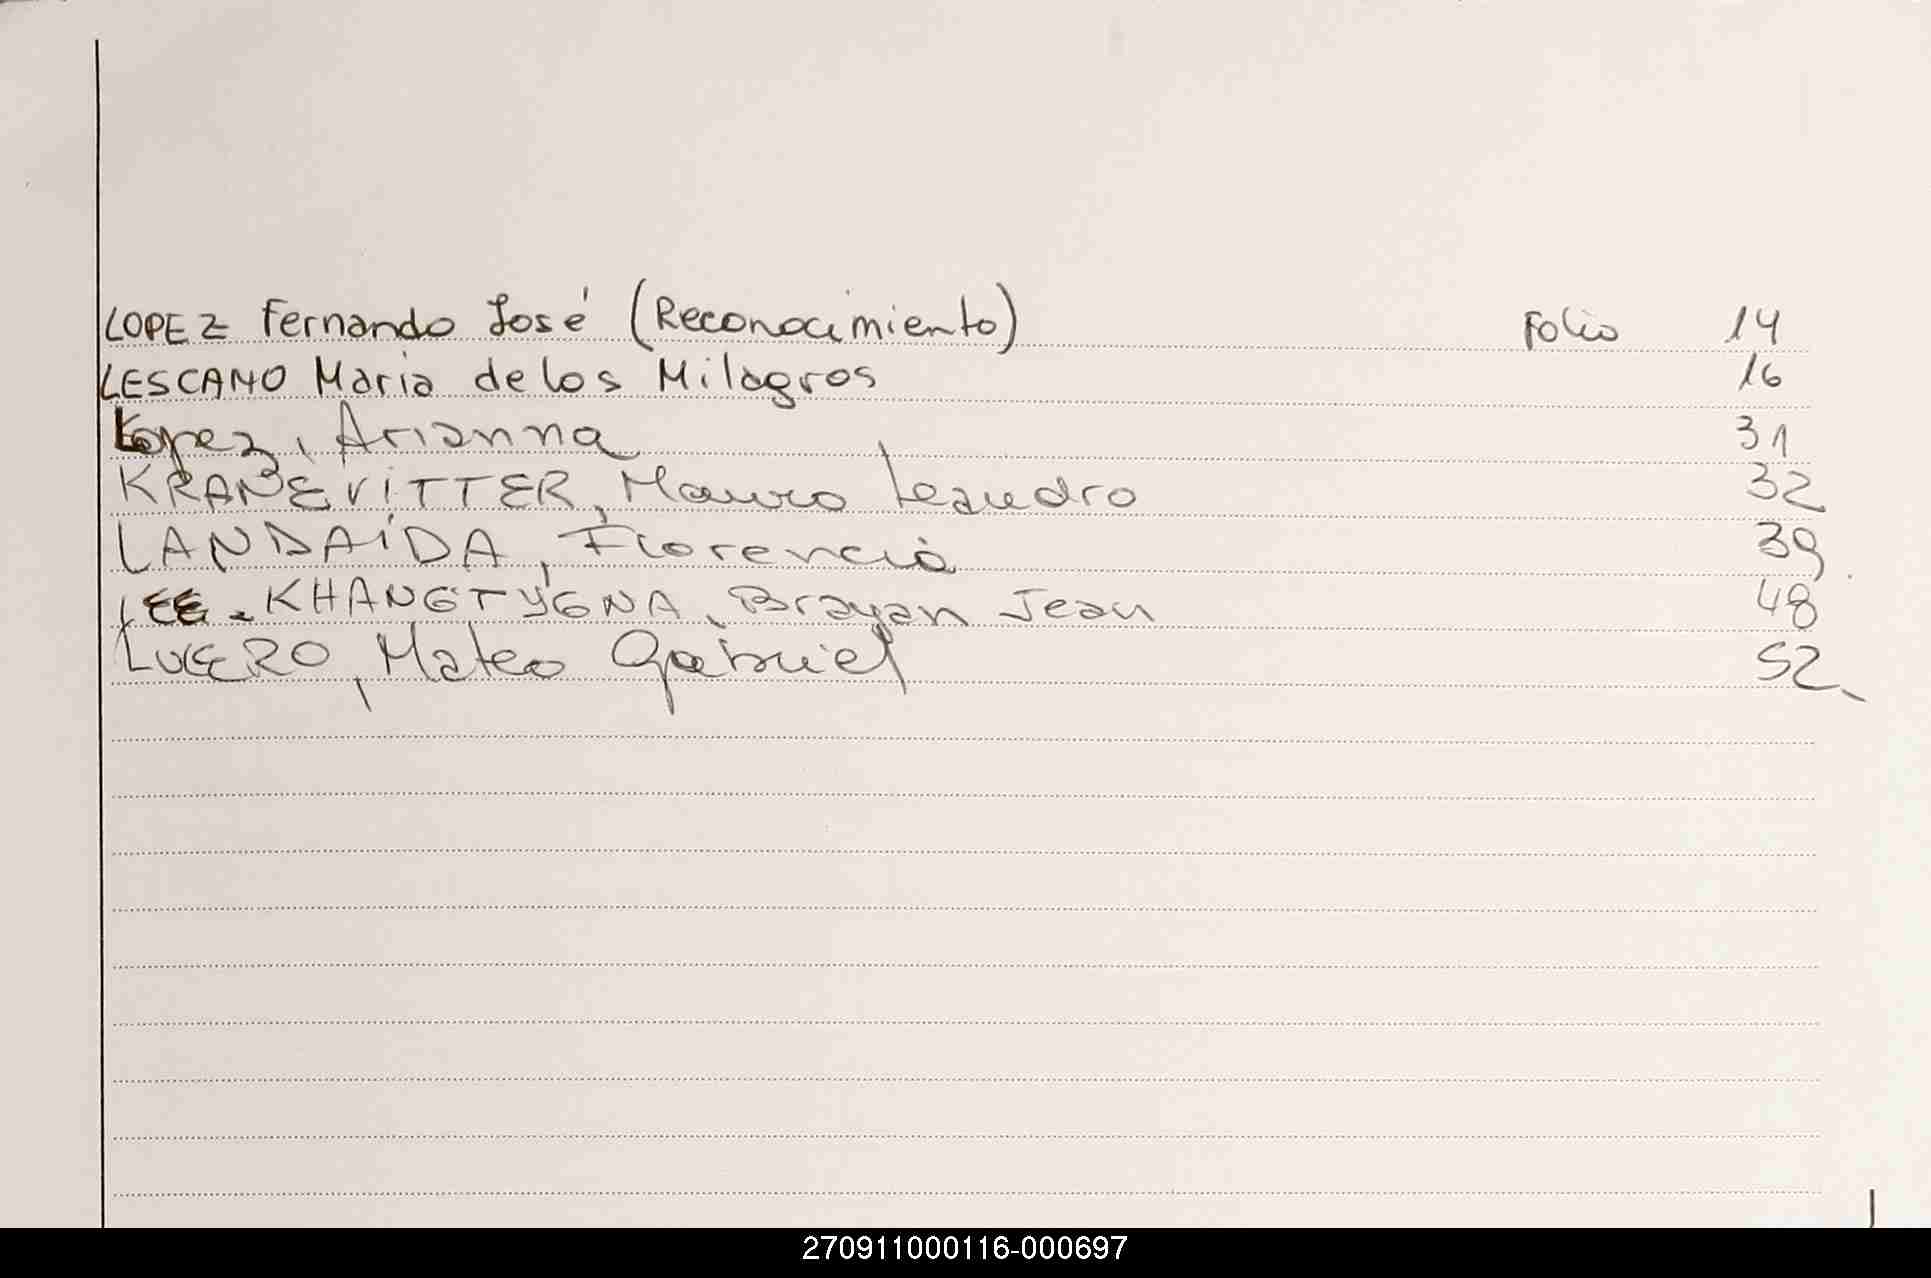 LOPEZ Fernando José (Reconocimiento) Folio 14
LESCANO Maria de los Milagros 16
Lopez, Arianna 31
KRANEVITTER, Mauro Leandro 32
LANDAIDA, Florencia 39
LEE - KHANGTYGNA, Brayan Jean 48
LUCERO, Mateo Gabriel 52
270911000116-000697